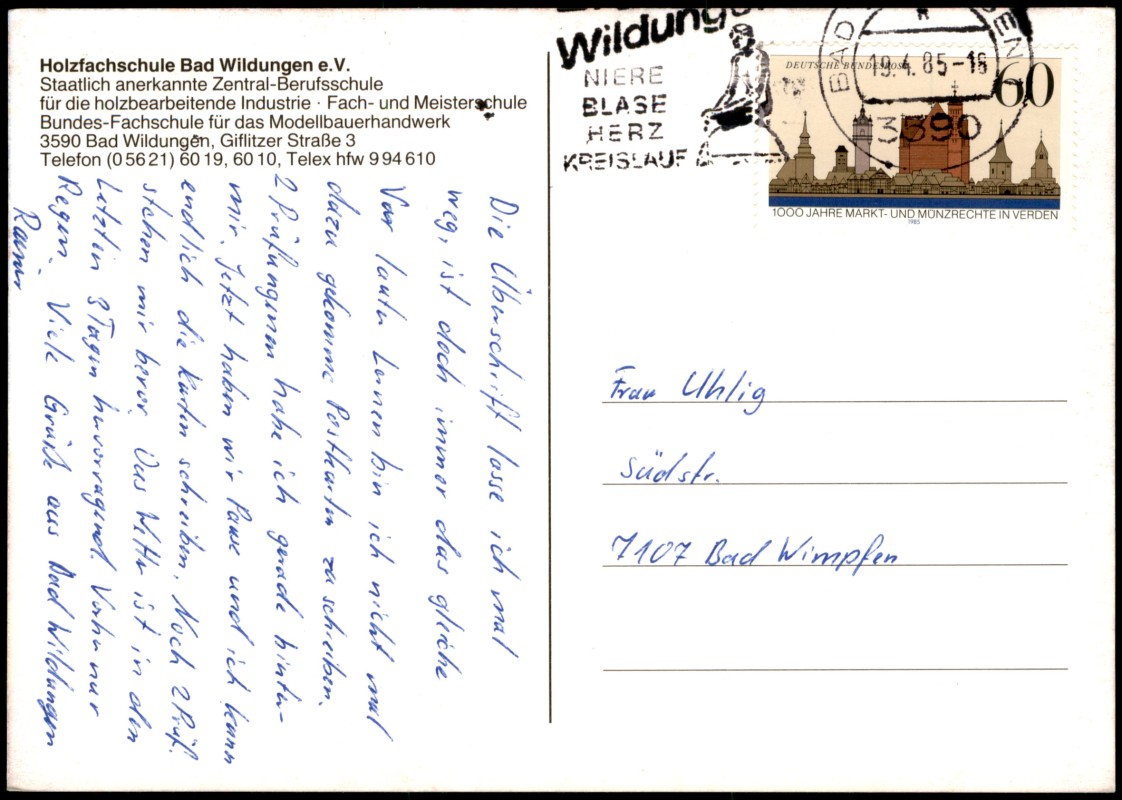 Holzfachschule Bad Wildungen e.V.
Staatlich anerkannte Zentral-Berufsschule
für die holzbearbeitende Industrie · Fach- und Meisterschule
Bundes-Fachschule für das Modellbauerhandwerk
3590 Bad Wildungen, Giflitzer Straße 3
Telefon (0 56 21) 60 19, 60 10, Telex hfw 9 94 610
Die Überschrift lasse ich mal
weg, ist doch immer das gleiche
Vor lauter Lernen bin ich nicht mal
dazu gekomme Postkarten zu schreiben.
2 Prüfungenen habe ich gerade hinter-
mir. Jetzt haben wir Pause und ich kann
endlich die Karten schreiben. Noch 2 Prüf.
stehen mir bevor. Das Wetter ist in den
letzten 3 Tagen hervorragend. Vorher nur
Regen. Viele Grüße aus Bad Wildungen
Rainer
Wildungen
NIERE
BLASE
HERZ
KREISLAUF
BAD
19.4.85-16
3590
DEUTSCHE BUNDESPOST
60
1000 JAHRE MARKT- UND MÜNZRECHTE IN VERDEN
1985
Frau Uhlig
Südstr.
7107 Bad Wimpfen